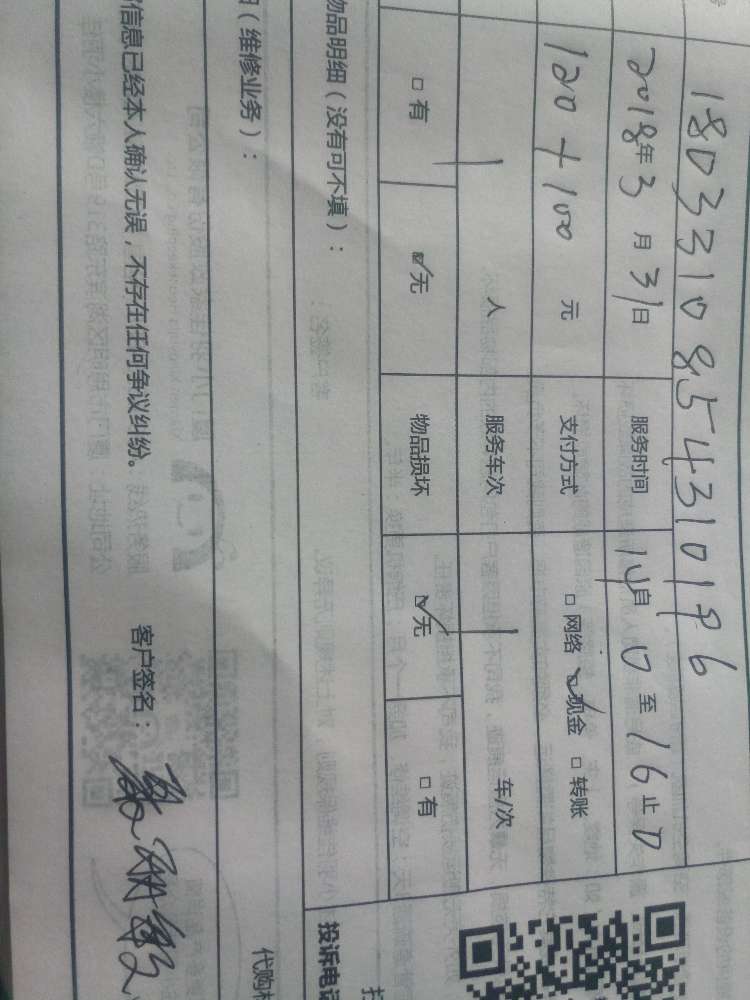 1803310854310196
2018年3月31日 服务时间 14自0至16止0
120+100 元 支付方式 □网络 ☑现金 □转账
1 人 服务车次 1 车/次
□有 ☑无 物品损坏 ☑无 □有
物品明细（没有可不填）： 投诉电话
（维修业务）： 代购
信息已经本人确认无误，不存在任何争议纠纷。 客户签名：